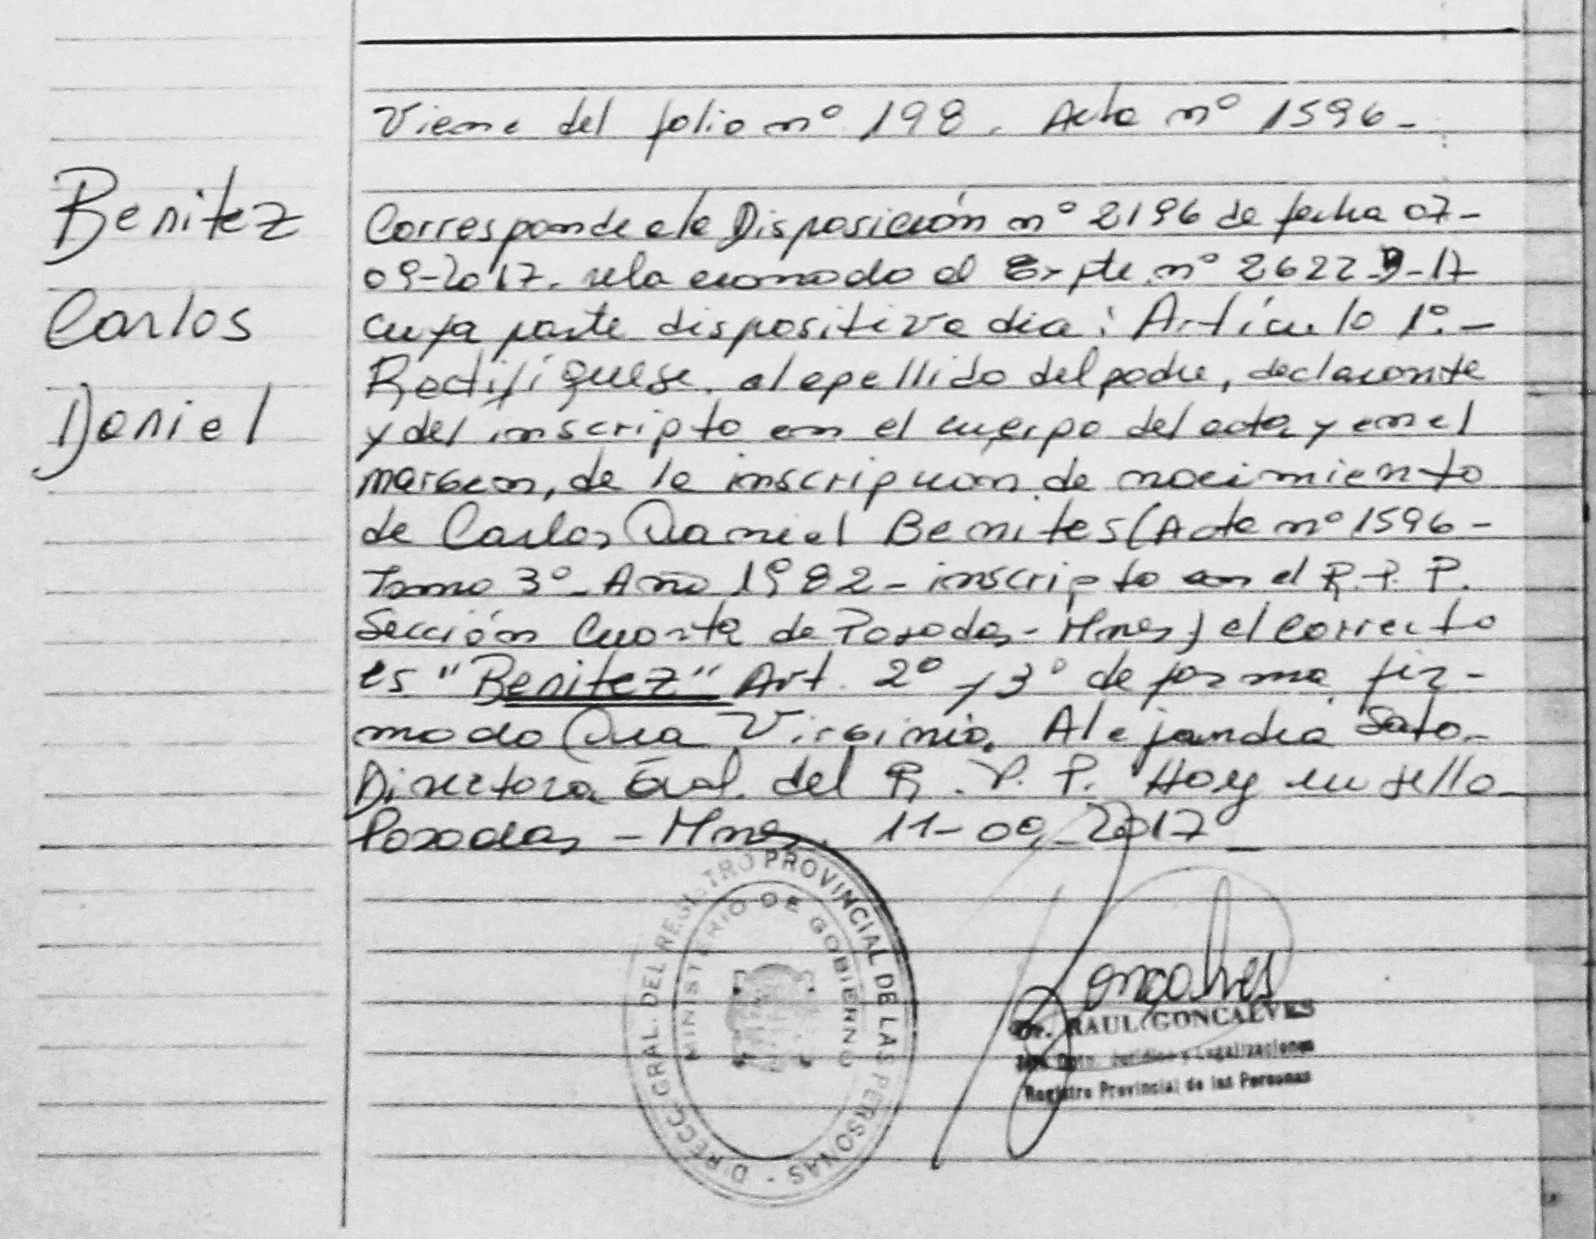 Viene del folio nº 198. Acta nº 1596-
Benitez
Carlos
Daniel
Corresponde a la Disposición nº 2196 de fecha 07-
09-2017. relacionado al Expte. nº 2622-17
cuya parte dispositiva dice: Artículo 1º.-
Rectifíquese, el apellido del padre, declarante
y del inscripto en el cuerpo del acta y en el
margen, de la inscripcion de nacimiento
de Carlos Daniel Benites (Acta nº 1596-
Tomo 3º- Año 1982- inscripto en el R.P.P.
Sección Cuarta de Posadas-Mnes) el correcto
es "Benitez" Art. 2º y 3º de forma fir-
mado Dra Virginia Alejandra Soto-
Directora Gral. del R.P.P. Hoy su sello
Posadas - Mnes. 11-09-2017-
DIRECC. GRAL. DEL REGISTRO PROVINCIAL DE LAS PERSONAS -
MINISTERIO DE GOBIERNO
Goncalves
Dr. RAUL GONCALVES
Dptn. Jurídico y Legalizaciones
Registro Provincial de las Personas